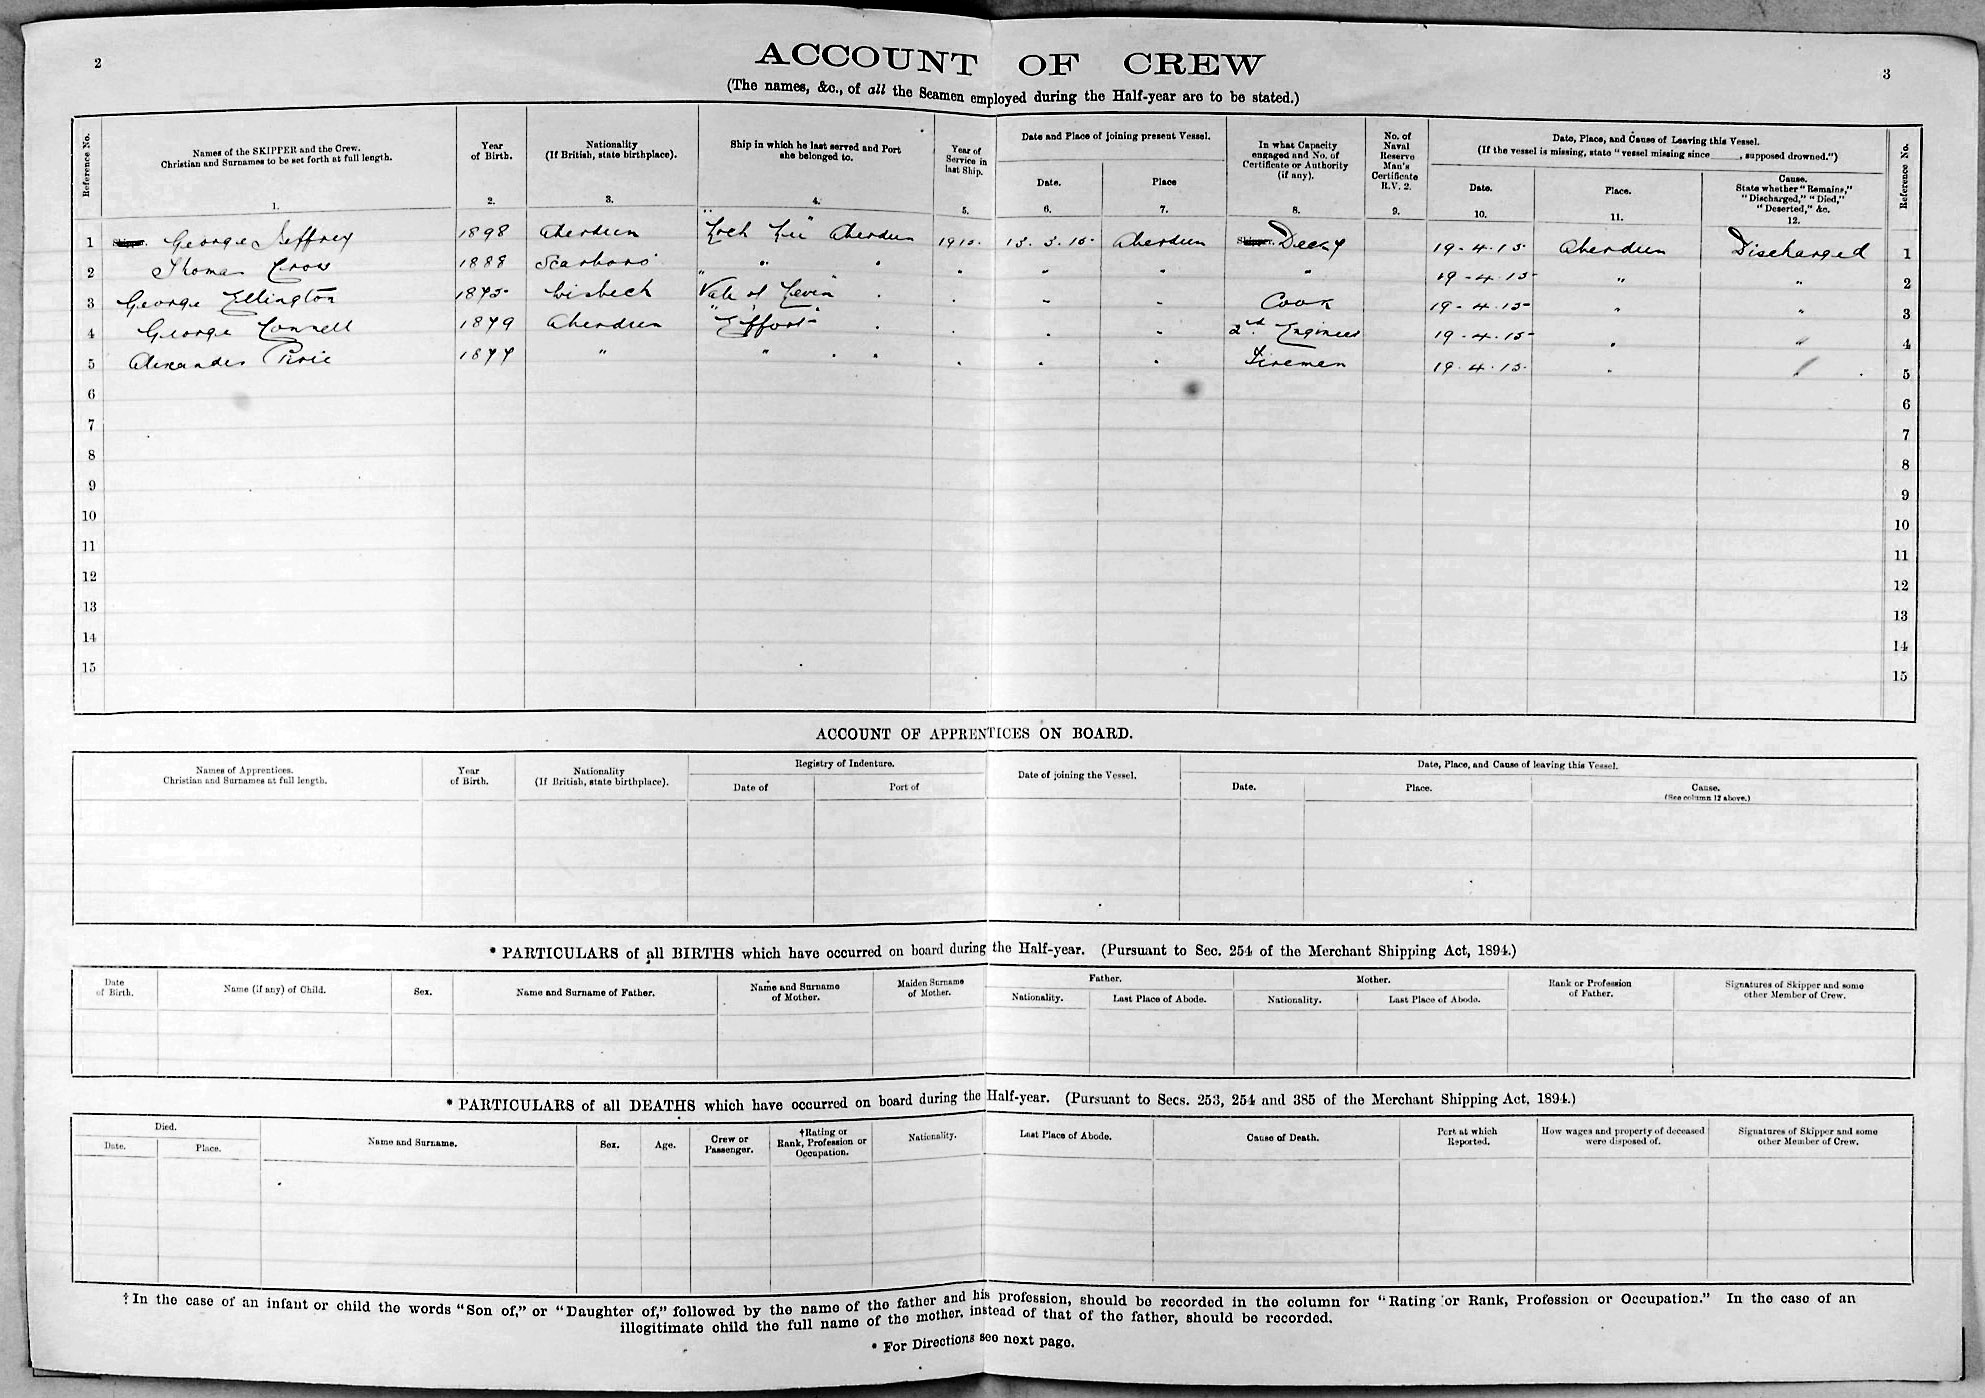 2
ACCOUNT OF CREW
3
(The names, &c., of all the Seamen employed during the Half-year are to be stated.)
Reference No.
Names of the SKIPPER and the Crew.
Christian and Surnames to be set forth at full length.
1.
Year
of Birth.
2.
Nationality
(If British, state birthplace).
3.
Ship in which he last served and Port
she belonged to.
4.
Year of
Service in
last Ship.
5.
Date and Place of joining present Vessel.
Date.
6.
Place
7.
In what Capacity
engaged and No. of
Certificate or Authority
(if any).
8.
No. of
Naval
Reserve
Man's
Certificate
R.V. 2.
9.
Date, Place, and Cause of Leaving this Vessel.
(If the vessel is missing, state "vessel missing since ____, supposed drowned.")
Date.
10.
Place.
11.
Cause.
State whether "Remains,"
"Discharged," "Died,"
"Deserted," &c.
12.
Reference No.
1 Skipper. George Jeffrey 1898 Aberdeen "Loch Lee" Aberdeen 1915. 13.3.15 Aberdeen Skipper. Decky 19-4.15 Aberdeen Discharged 1
2 Thomas Cross 1888 Scarboro " " " " " " " 19-4.15 " " 2
3 George Ellington 1875 Wisbech "Vale of Leven" " " " " Cook 19-4.15 " " 3
4 George Connell 1879 Aberdeen "Effort" " " " " 2nd Engineer 19-4.15 " " 4
5 Alexander Pirie 1877 " " " " " " " Firemen 19.4.15. " " 5
6 6
7 7
8 8
9 9
10 10
11 11
12 12
13 13
14 14
15 15
ACCOUNT OF APPRENTICES ON BOARD.
Names of Apprentices.
Christian and Surnames at full length.
Year
of Birth.
Nationality
(If British, state birthplace).
Registry of Indenture.
Date of
Port of
Date of joining the Vessel.
Date, Place, and Cause of leaving this Vessel.
Date.
Place.
Cause.
(See column 12 above.)
* PARTICULARS of all BIRTHS which have occurred on board during the Half-year. (Pursuant to Sec. 254 of the Merchant Shipping Act, 1894.)
Date
of Birth.
Name (if any) of Child.
Sex.
Name and Surname of Father.
Name and Surname
of Mother.
Maiden Surname
of Mother.
Father.
Nationality.
Last Place of Abode.
Mother.
Nationality.
Last Place of Abode.
Rank or Profession
of Father.
Signatures of Skipper and some
other Member of Crew.
* PARTICULARS of all DEATHS which have occurred on board during the Half-year. (Pursuant to Secs. 253, 254 and 385 of the Merchant Shipping Act, 1894.)
Died.
Date.
Place.
Name and Surname.
Sex.
Age.
Crew or
Passenger.
†Rating or
Rank, Profession or
Occupation.
Nationality.
Last Place of Abode.
Cause of Death.
Port at which
Reported.
How wages and property of deceased
were disposed of.
Signatures of Skipper and some
other Member of Crew.
†In the case of an infant or child the words "Son of," or "Daughter of," followed by the name of the father and his profession, should be recorded in the column for "Rating or Rank, Profession or Occupation." In the case of an
illegitimate child the full name of the mother, instead of that of the father, should be recorded.
* For Directions see next page.